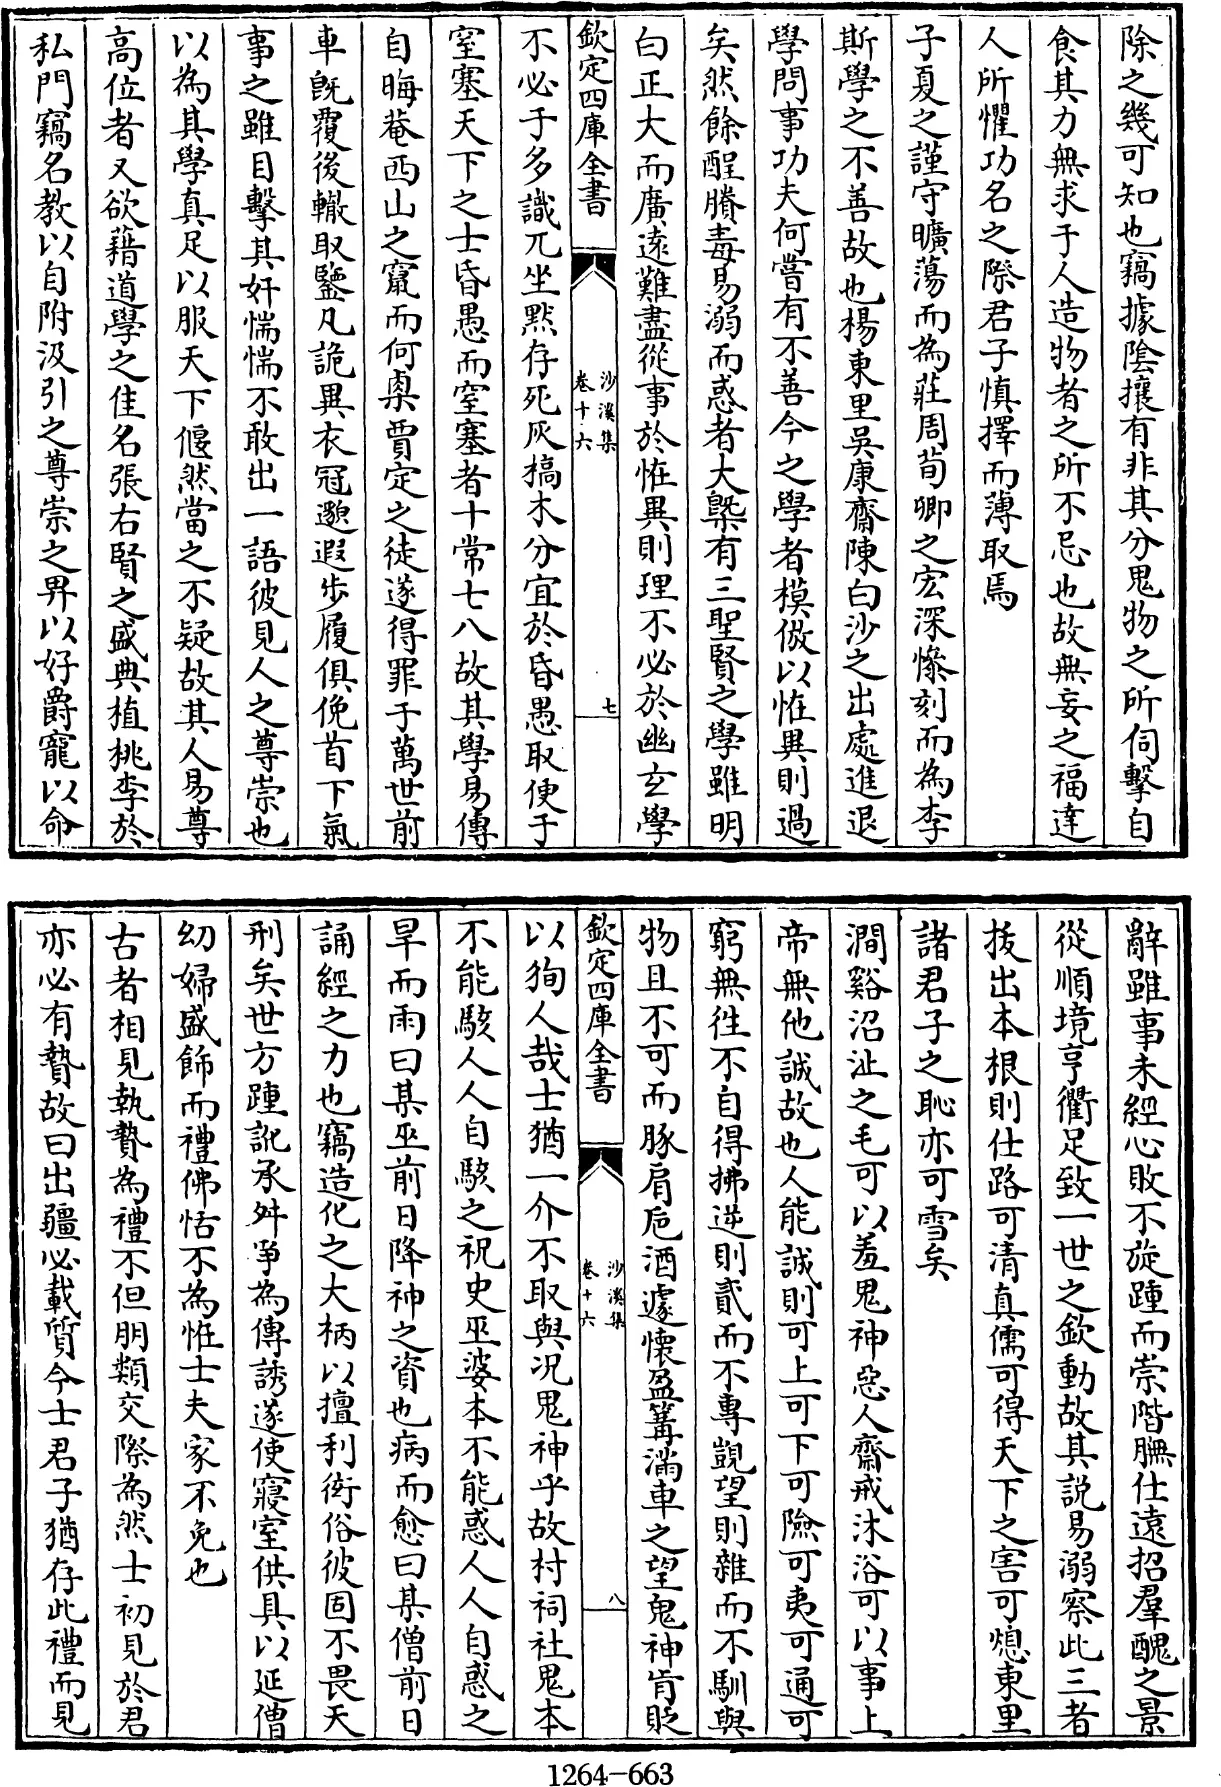 除之幾可知也竊據陰攘有非其分鬼物之所伺擊自
食其力無求于人造物者之所不忌也故無妄之福達
人所懼功名之際君子慎擇而薄取焉
子夏之謹守曠蕩而為莊周荀卿之宏深慘刻而為李
斯學之不善故也楊東里吳康齋陳白沙之出處進退
學問事功夫何嘗有不善今之學者模倣以恠異則過
矣然餘酲賸毒易溺而惑者大槩有三聖賢之學雖明
白正大而廣遠難盡從事於恠異則理不必於幽玄學
欽定四庫全書
沙溪集
卷十六
七
不必于多識兀坐默存死灰搞木分宜於昏愚取便于
窒塞天下之士昏愚而窒塞者十常七八故其學易傳
自晦菴西山之竄而何㮚賈定之徒遂得罪于萬世前
車旣覆後轍取鑒凡詭異衣冠邈遐步履俱俛首下氣
事之雖目擊其奸惴惴不敢出一語彼見人之尊崇也
以為其學真足以服天下偃然當之不疑故其人易尊
高位者又欲藉道學之佳名張右賢之盛典植桃李於
私門竊名教以自附汲引之尊崇之畀以好爵寵以命
辭雖事未經心敗不旋踵而崇階膴仕遠招羣醜之景
從順境亨衢足致一世之欽動故其説易溺察此三者
拔出本根則仕路可清真儒可得天下之害可熄東里
諸君子之恥亦可雪矣
澗谿沼沚之毛可以羞鬼神惡人齋戒沐浴可以事上
帝無他誠故也人能誠則可上可下可險可夷可通可
窮無徃不自得拂逆則貳而不專覬望則雜而不馴與
物且不可而豚肩卮酒遽懐盈篝滿車之望鬼神肯貶
欽定四庫全書
沙溪集
卷十六
八
以狥人哉士猶一介不取與况鬼神乎故村祠社鬼本
不能駭人人自駭之祝史巫婆本不能惑人人自惑之
旱而雨曰某巫前日降神之資也病而愈曰某僧前日
誦經之力也竊造化之大柄以擅利衒俗彼固不畏天
刑矣世方踵訛承舛爭為傳誘遂使寢室供具以延僧
幼婦盛飾而禮佛恬不為恠士夫家不免也
古者相見執贄為禮不但朋類交際為然士初見於君
亦必有贄故曰出疆必載質今士君子猶存此禮而見
1264-663